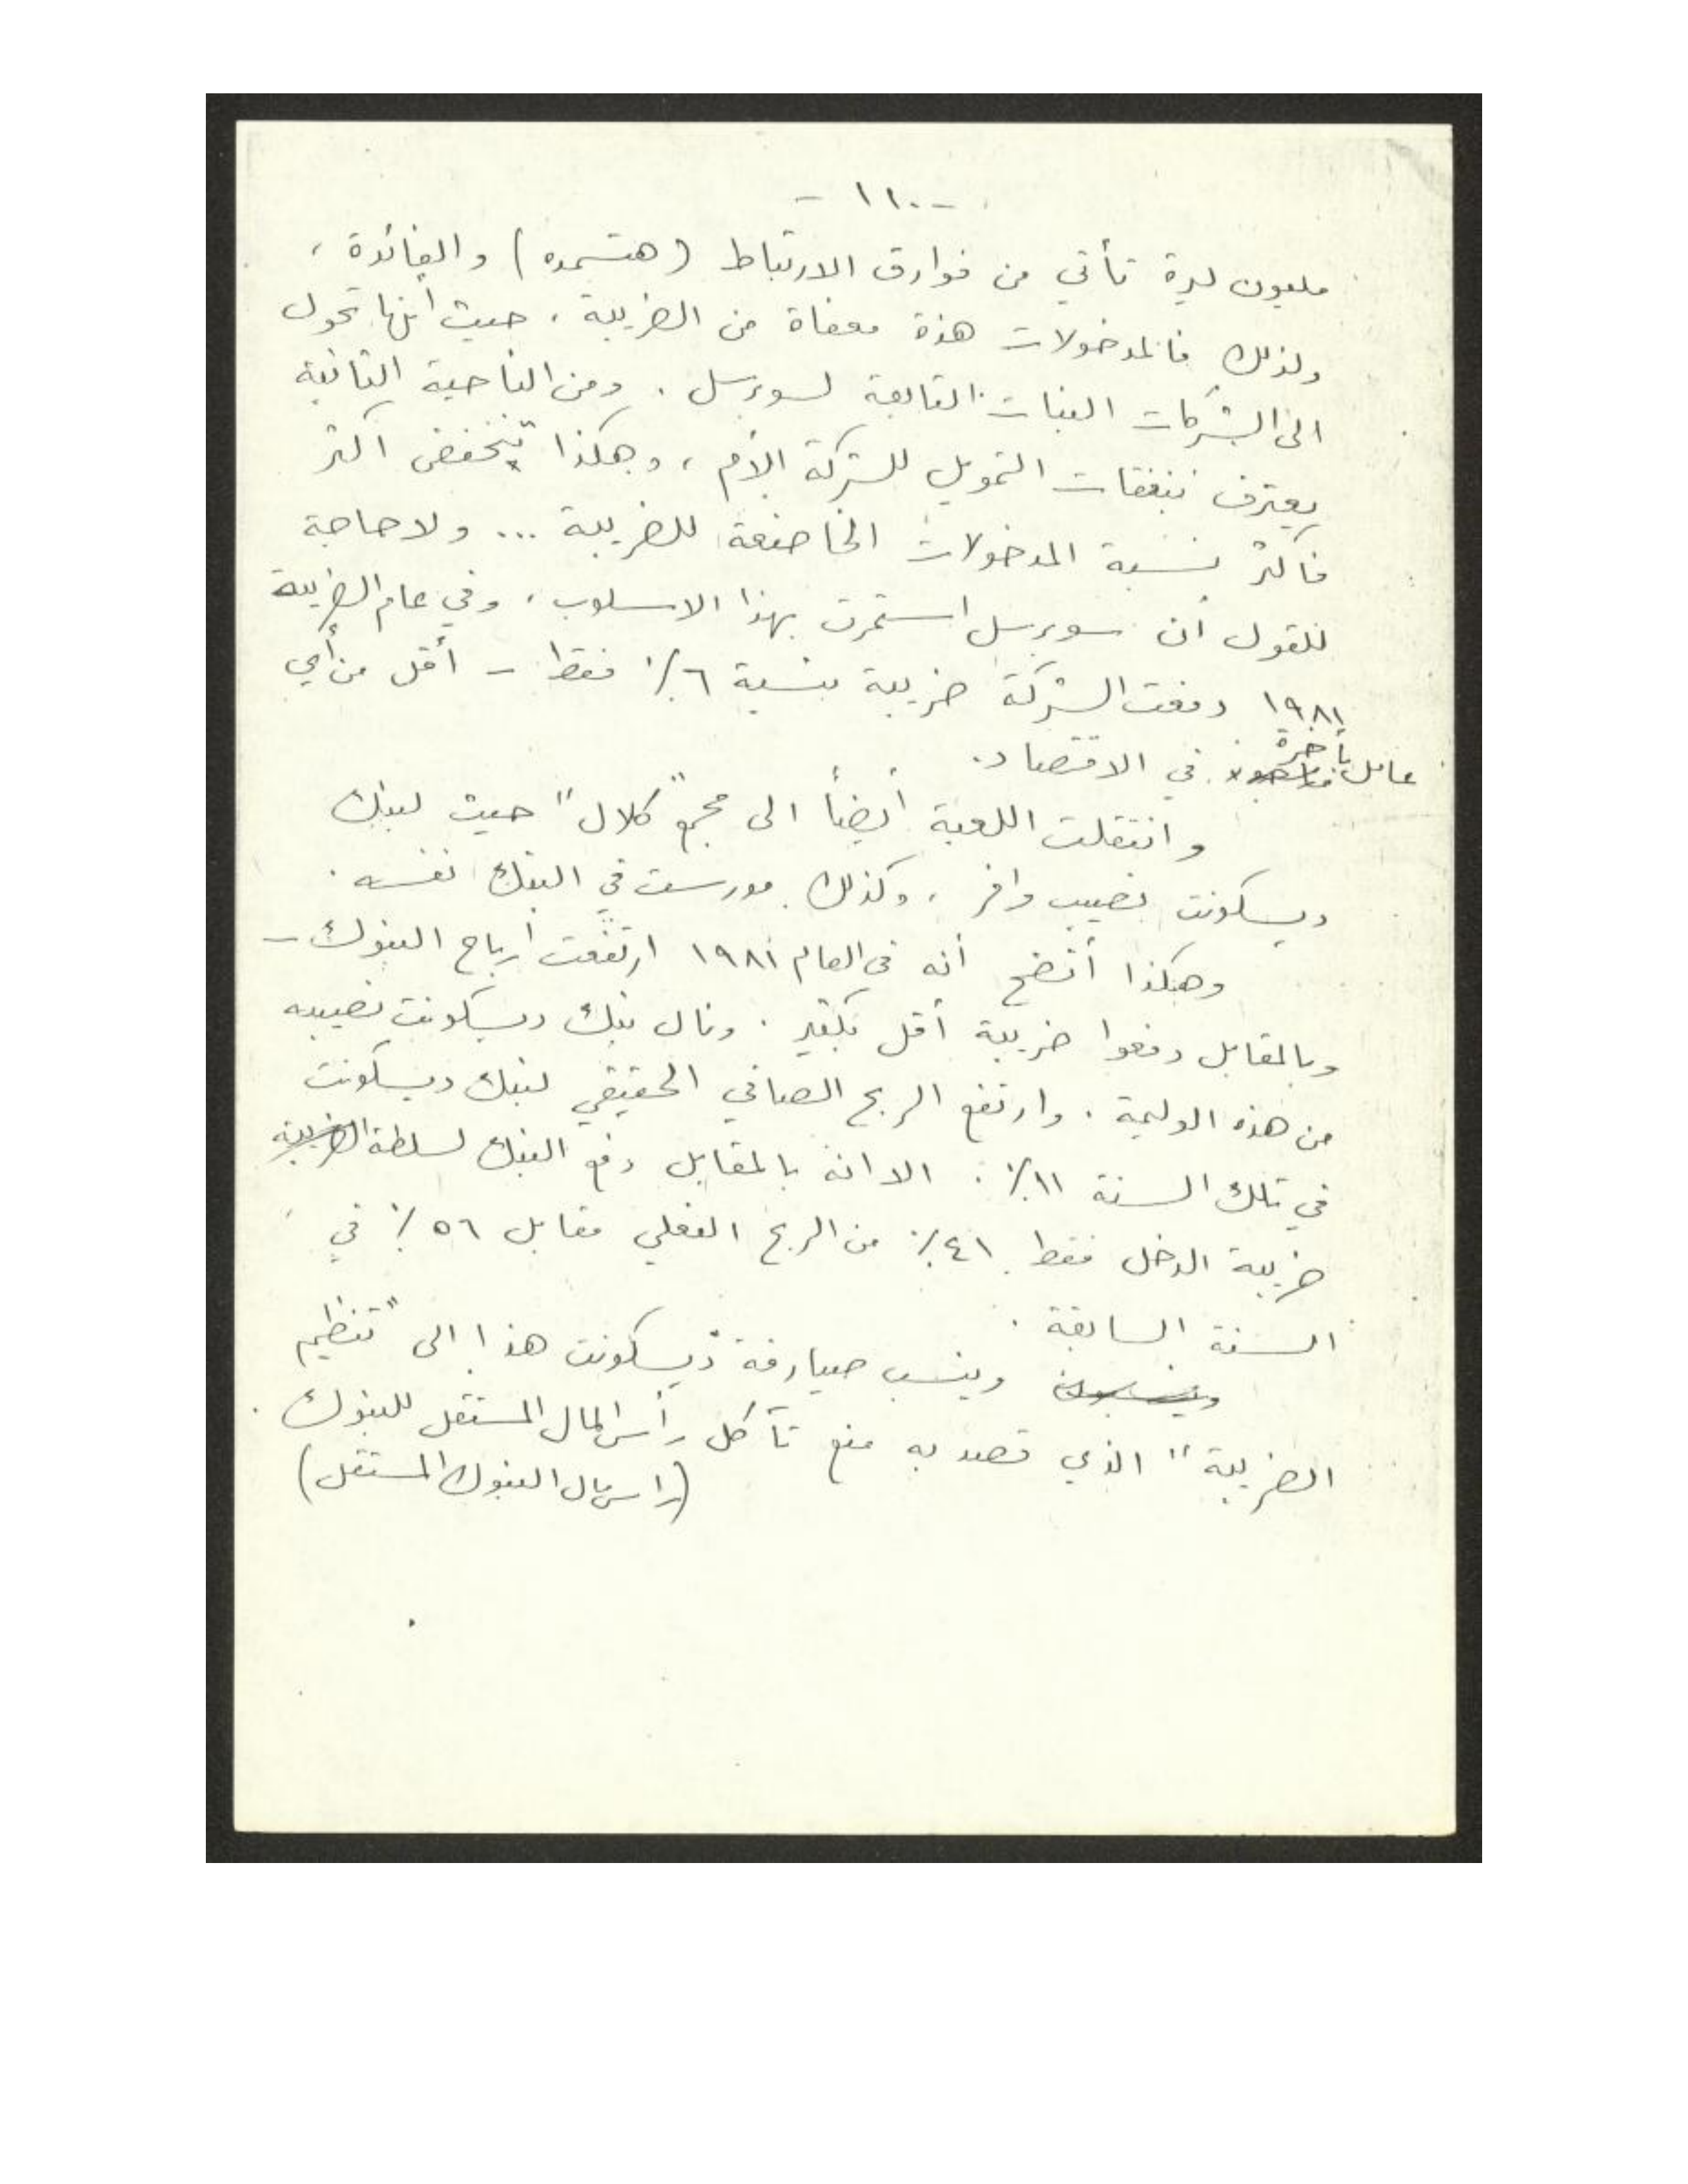 - ١١٠ -
مليون ليرة تأتي من فوارق الارتباط (هتسمده) والفائدة،
ولذلك فالمدخولات هذة معفاة من الضريبة، حيث أنها تحول
الى الشركات البنات التابعة لسوبرسل. ومن الناحية الثانية
يعترف بنفقات التمويل للشركة الأم، وهكذا تنخفض اكثر
فاكثر نسبة المدخولات الخاضعة للضريبة ... ولا حاجة
للقول أن سوبرسل استمرت بهذا الاسلوب، وفي عام الضريبة
١٩٨١ دفعت الشركة ضريبة بنسبة ٦٪ فقط - أقل من أي
عامل بأجرة في الاقتصاد.
وانتقلت اللعبة أيضاً الى مجمع "كلال" حيث لبنك
ديسكونت نصيب وافر، وكذلك مورست في البنك نفسه.
وهكذا أتضح أنه في العام ١٩٨١ ارتفعت أرباح البنوك -
وبالمقابل دفعوا ضريبة أقل بكثير. ونال بنك ديسكونت نصيبه
من هذه الوليمة. وارتفع الربح الصافي الحقيقي لبنك ديسكونت
في تلك السنة ١١٪. الا انه بالمقابل دفع البنك لسلطة الضريبة
ضريبة الدخل فقط ٤١٪ من الربح الفعلي مقابل ٥٦٪ في
السنة السابقة.
وينسبون وينسب صيارفة ديسكونت هذا الى "تنظيم
الضريبة" الذي قصد به منع تآكل رأس المال المستقل للبنوك
(راسمال البنوك المستقل)